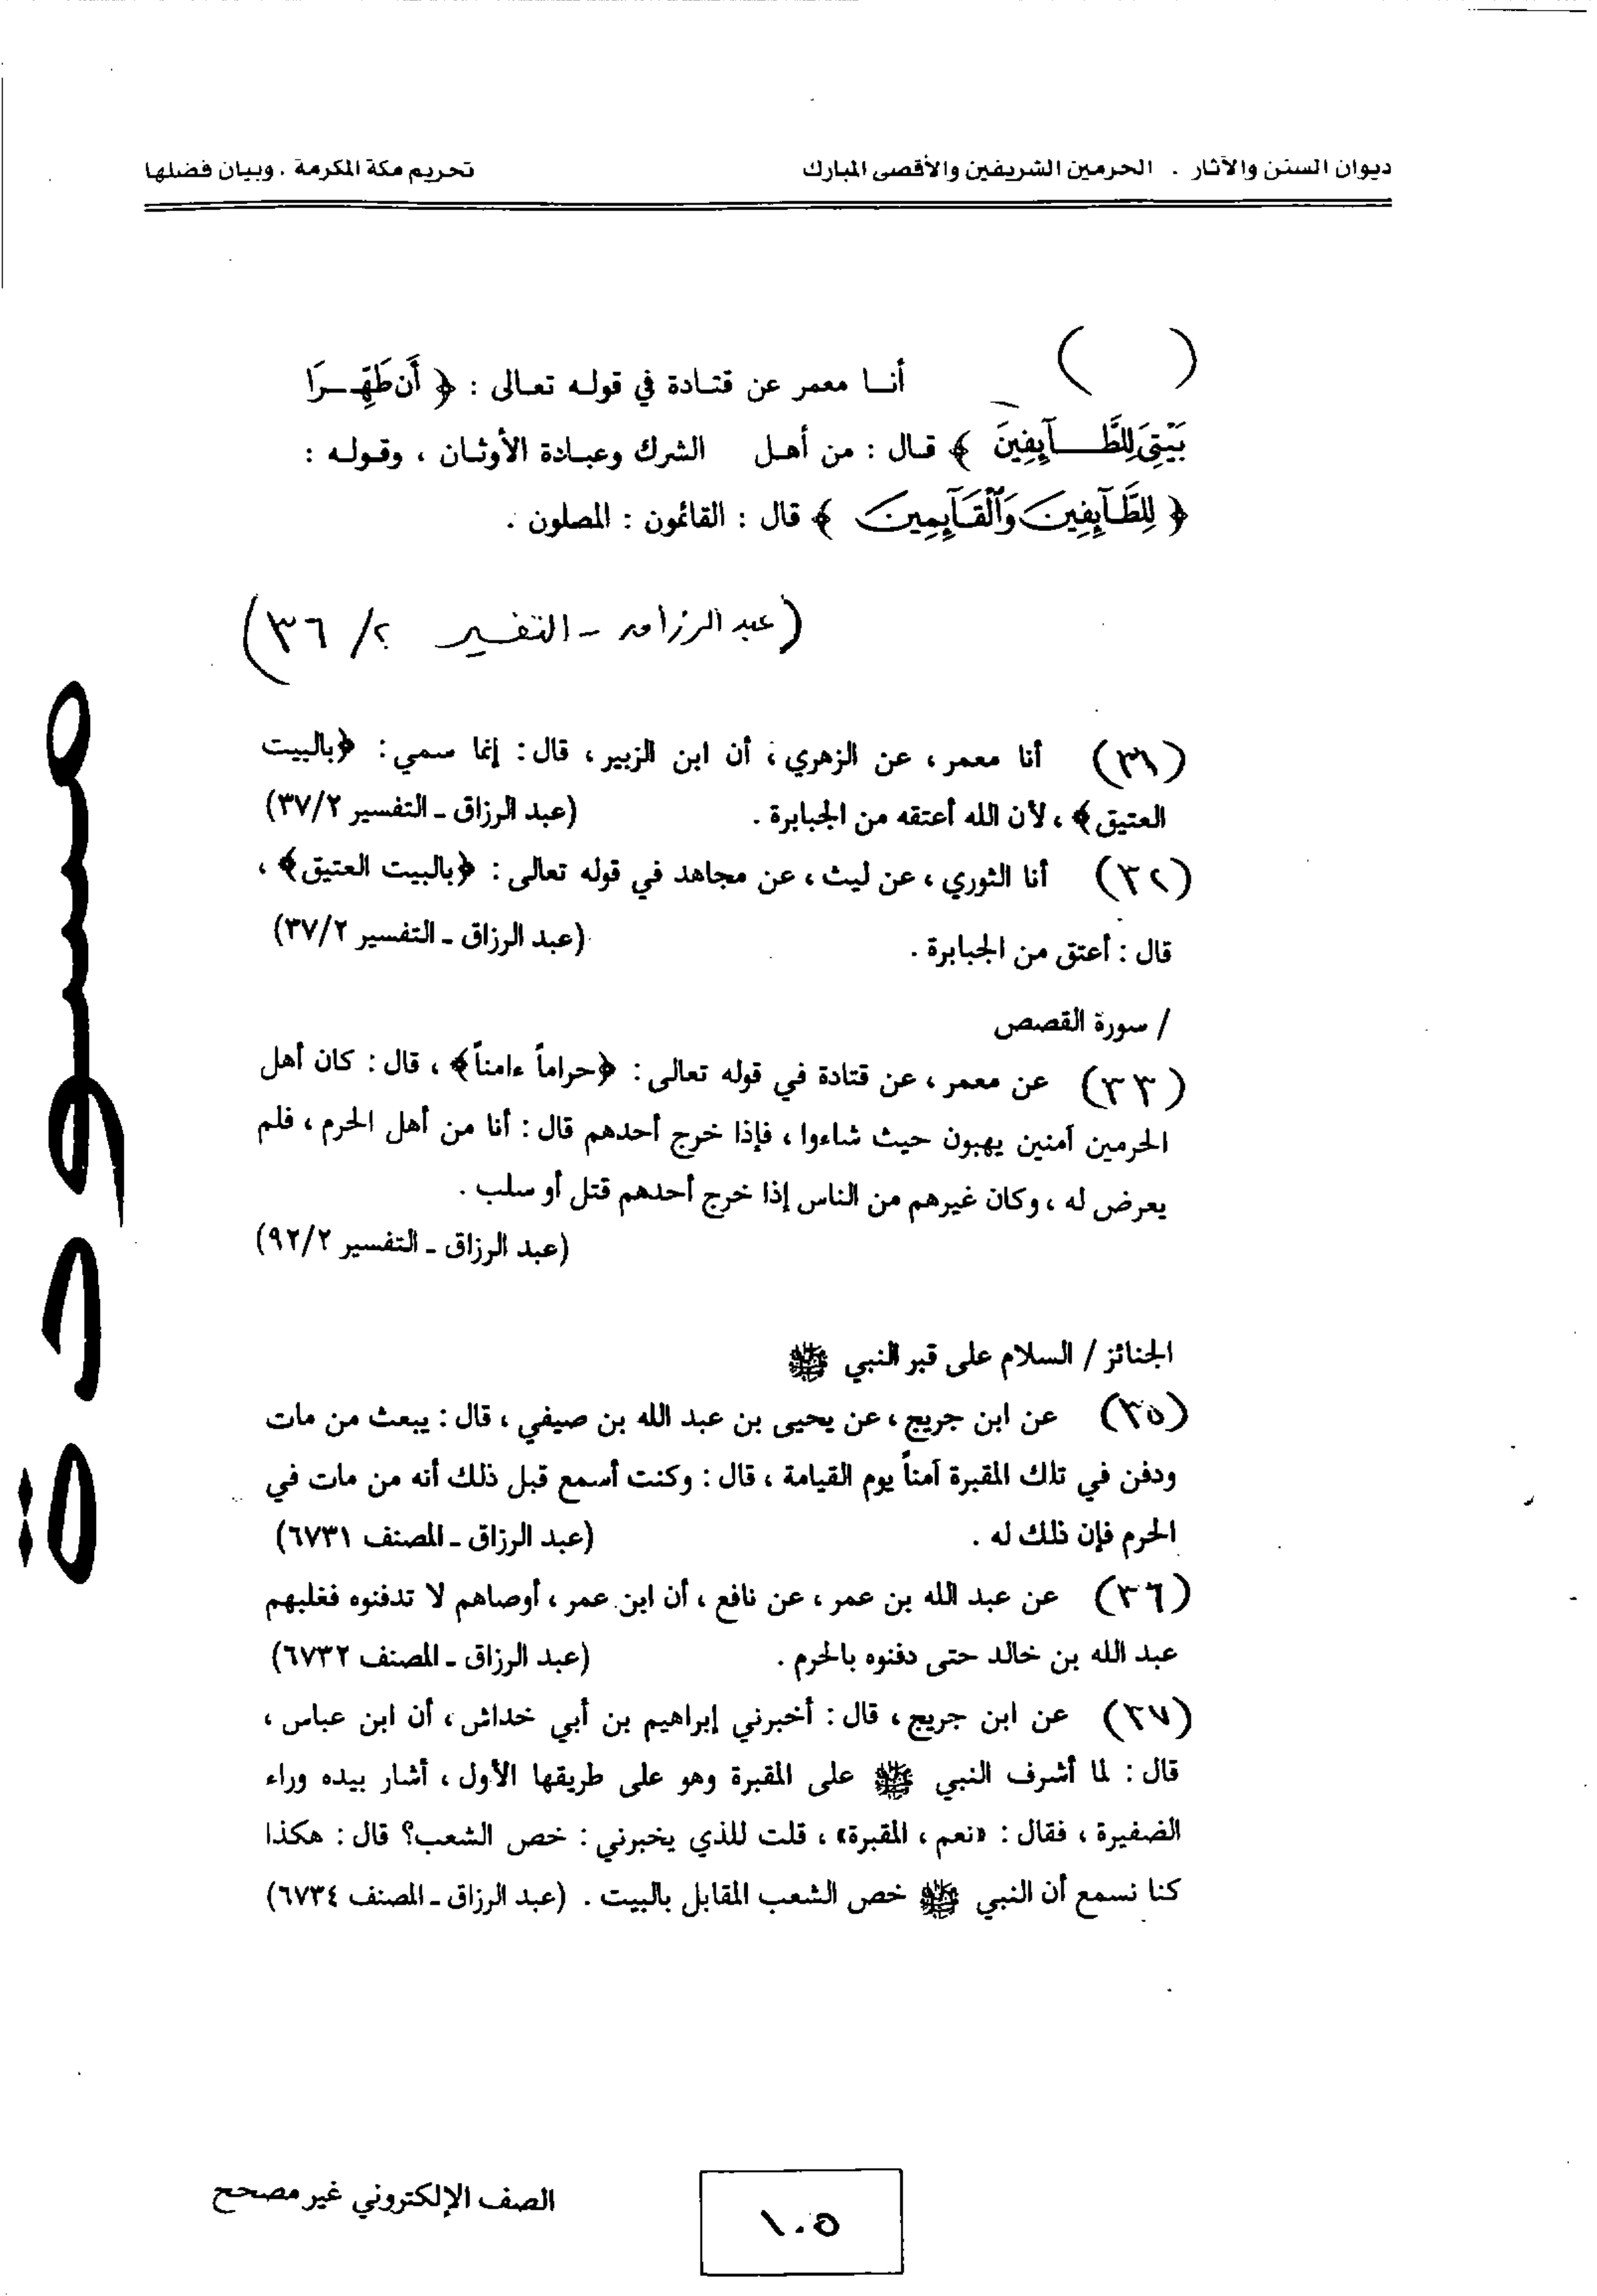 ديوان السنن والآثار . الحرمين الشريفين والأقصى المبارك تحريم مكة المكرمة . وبيان فضلها
( ) أنا معمر عن قتادة في قوله تعالى : ﴿ أَن طَهِّرَا
بَيْتِيَ لِلطَّآئِفِينَ ﴾ قال : من أهل الشرك وعبادة الأوثان ، وقوله :
﴿ لِلطَّآئِفِينَ وَٱلْقَآئِمِينَ ﴾ قال : القائمون : المصلون .
(عبد الرزاق - التفسير ٢/ ٣٦)
(٣١) أنا معمر ، عن الزهري ، أن ابن الزبير ، قال : إنما سمي : ﴿بالبيت
العتيق﴾ ، لأن الله أعتقه من الجبابرة . (عبد الرزاق ـ التفسير ٣٧/٢)
(٣٢) أنا الثوري ، عن ليث ، عن مجاهد في قوله تعالى : ﴿بالبيت العتيق﴾ ،
قال : أعتق من الجبابرة . (عبد الرزاق ـ التفسير ٣٧/٢)
/ سورة القصص
(٣٣) عن معمر ، عن قتادة في قوله تعالى : ﴿حراماً ءامناً﴾ ، قال : كان أهل
الحرمين آمنين يهبون حيث شاءوا ، فإذا خرج أحدهم قال : أنا من أهل الحرم ، فلم
يعرض له ، وكان غيرهم من الناس إذا خرج أحدهم قتل أو سلب .
(عبد الرزاق ـ التفسير ٩٢/٢)
الجنائز / السلام على قبر النبي ﷺ
(٣٥) عن ابن جريج ، عن يحيى بن عبد الله بن صيفي ، قال : يبعث من مات
ودفن في تلك المقبرة آمناً يوم القيامة ، قال : وكنت أسمع قبل ذلك أنه من مات في
الحرم فإن ذلك له . (عبد الرزاق ـ المصنف ٦٧٣١)
(٣٦) عن عبد الله بن عمر ، عن نافع ، أن ابن عمر ، أوصاهم لا تدفنوه فغلبهم
عبد الله بن خالد حتى دفنوه بالحرم . (عبد الرزاق ـ المصنف ٦٧٣٢)
(٣٧) عن ابن جريج ، قال : أخبرني إبراهيم بن أبي خداش ، أن ابن عباس ،
قال : لما أشرف النبي ﷺ على المقبرة وهو على طريقها الأول ، أشار بيده وراء
الضفيرة ، فقال : «نعم ، المقبرة» ، قلت للذي يخبرني : خص الشعب؟ قال : هكذا
كنا نسمع أن النبي ﷺ خص الشعب المقابل بالبيت . (عبد الرزاق ـ المصنف ٦٧٣٤)
مسودة
الصف الإلكتروني غير مصحح
١٠٥